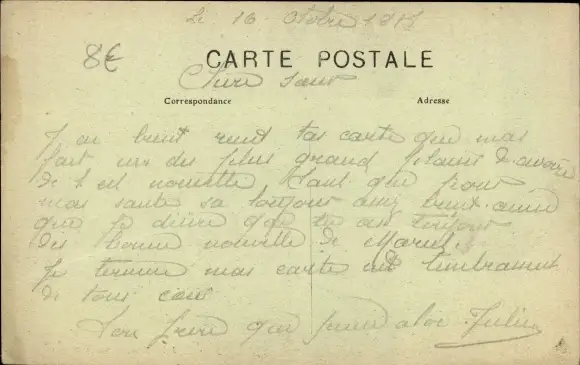 Le 16 Octobre 1917
8€
CARTE POSTALE
Chere seur
Correspondance
Adresse
J ai bient tas carte que mas
fait un des plus grand plaisir d avoire
de t es nouvelle quand que pour
mas sante sa toujour bient ainsi
que je désire que tu as toujour
des bonne nouvelle de
Je termine mas carte en t embrasant
de tous cour
Ton frere qui pense a toi Julien